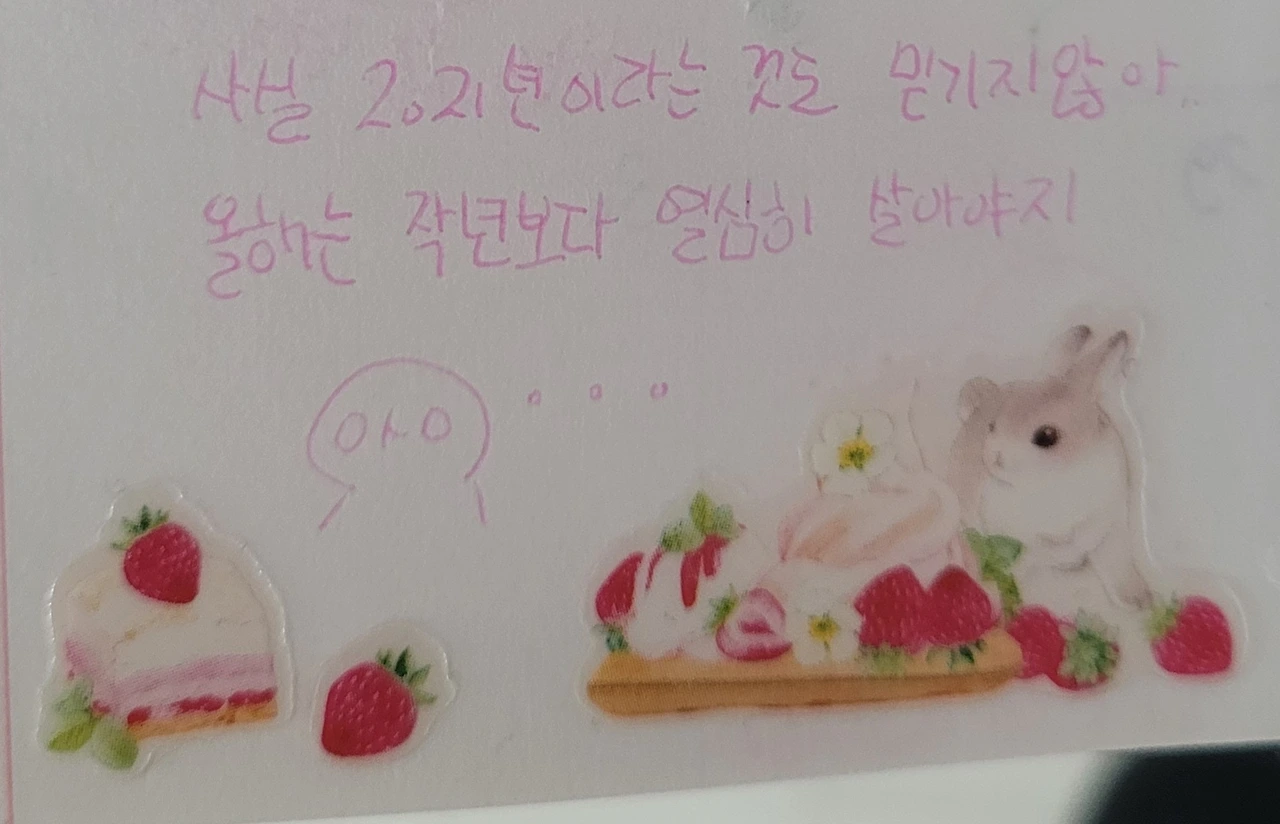 사실 2021년이라는 것도 믿기지않아..
올해는 작년보다 열심히 살아야지
ㅇㅅㅇ